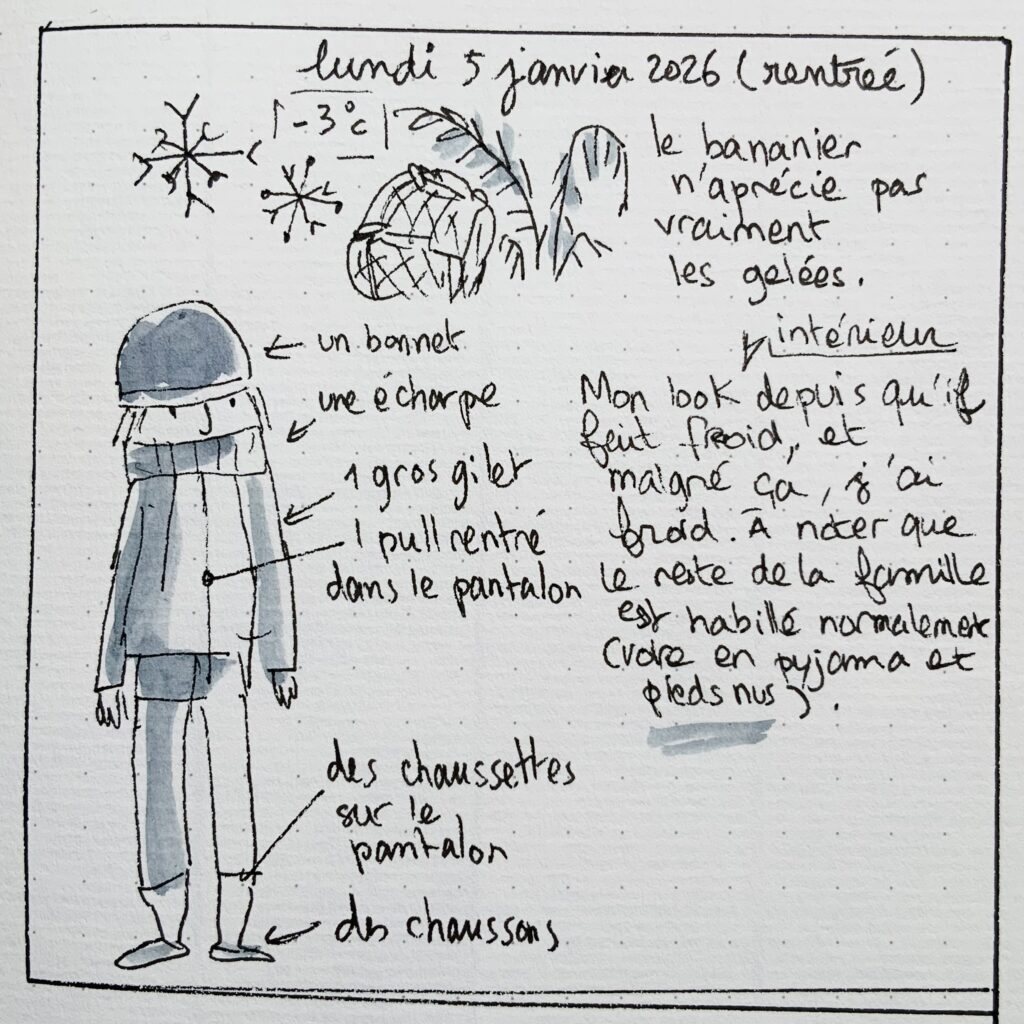 lundi 5 janvier 2026 (rentréé)
-3°C
le bananier
n'aprécie pas
vraiment
les gelées.
intérieur
un bonnet
une écharpe
1 gros gilet
1 pull rentré
dans le pantalon
Mon look depuis qu'il
fait froid, et
malgré ça, j'ai
froid. À noter que
le reste de la famille
est habillé normalement
(voire en pyjama et
pieds nus).
des chaussettes
sur le
pantalon
des chaussons